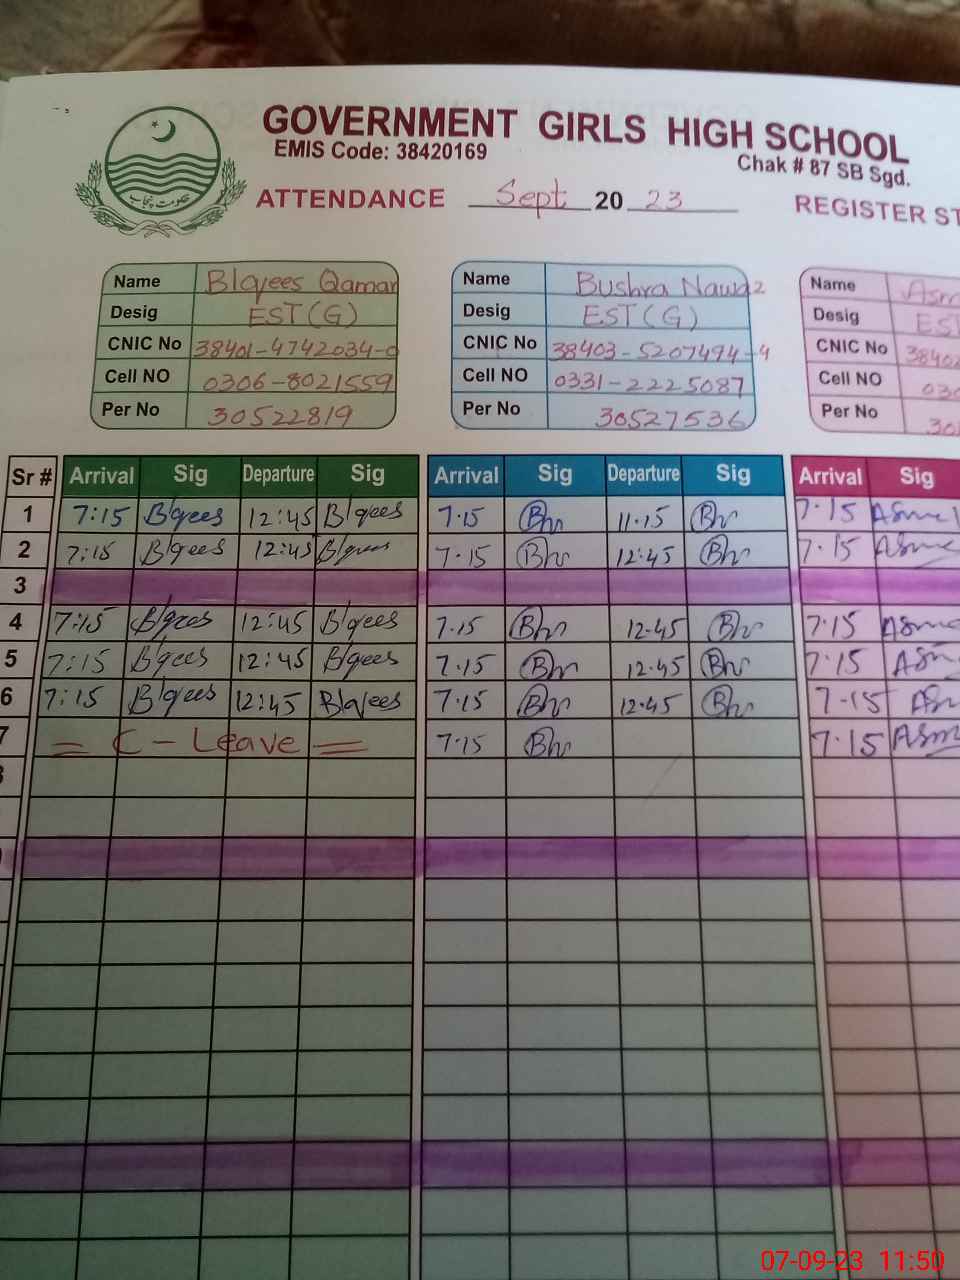 GOVERNMENT GIRLS HIGH SCHOOL
EMIS Code: 38420169
Chak # 87 SB Sgd.
حکومت پنجاب
ATTENDANCE Sept 20 23 REGISTER ST
Name Blqees Qamar Name Bushra Nawaz Name Asm
Desig EST (G) Desig EST (G) Desig EST
CNIC No 38401-4742034-0 CNIC No 38403-5207494-4 CNIC No 38402
Cell NO 0306-8021559 Cell NO 0331-2225087 Cell NO 030
Per No 30522819 Per No 30527536 Per No 30
Sr # Arrival Sig Departure Sig Arrival Sig Departure Sig Arrival Sig
1 7:15 Blqees 12:45 Blqees 7.15 Bhr 11.15 Bhr 7.15 Asma
2 7:15 Blqees 12:45 Blqees 7.15 Bhr 12.45 Bhr 7.15 Asma
3
4 7:15 Blqees 12:45 Blqees 7.15 Bhr 12.45 Bhr 7.15 Asma
5 7:15 Blqees 12:45 Blqees 7.15 Bhr 12.45 Bhr 7.15 Asm
6 7:15 Blqees 12:45 Blqees 7.15 Bhr 12.45 Bhr 7.15 Asm
7 = C - Leave = 7.15 Bhr 7.15 Asm
07-09-23 11:50